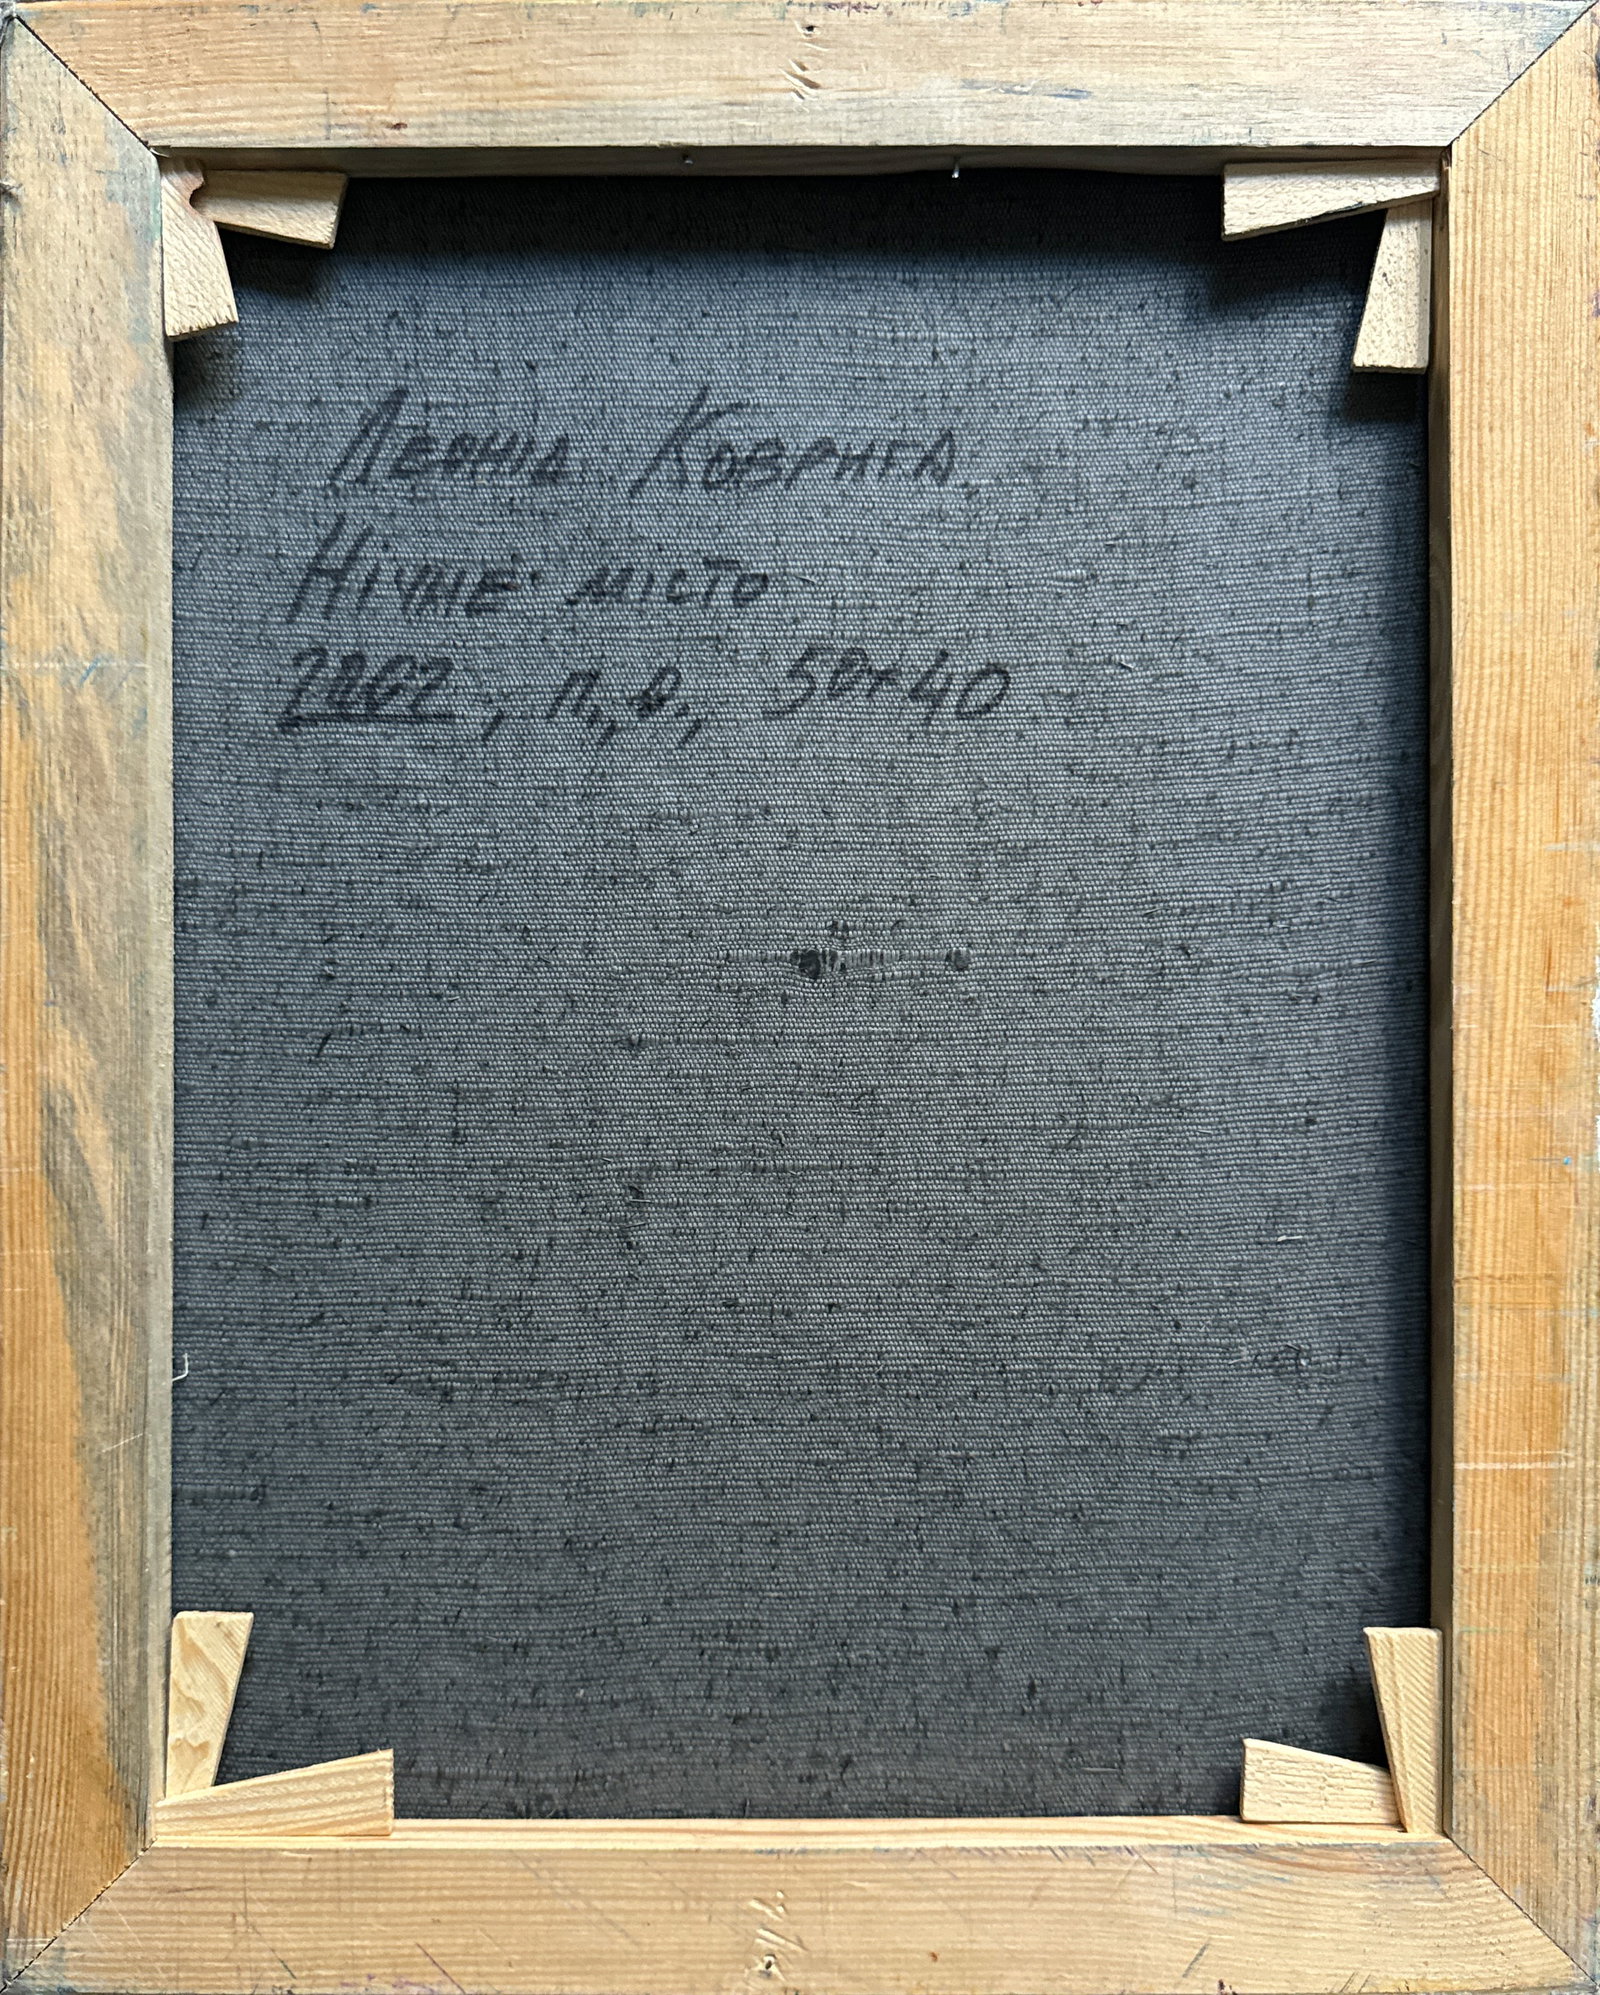 Леонід Коврига.
Нічне місто
2002, п., о., 50х40